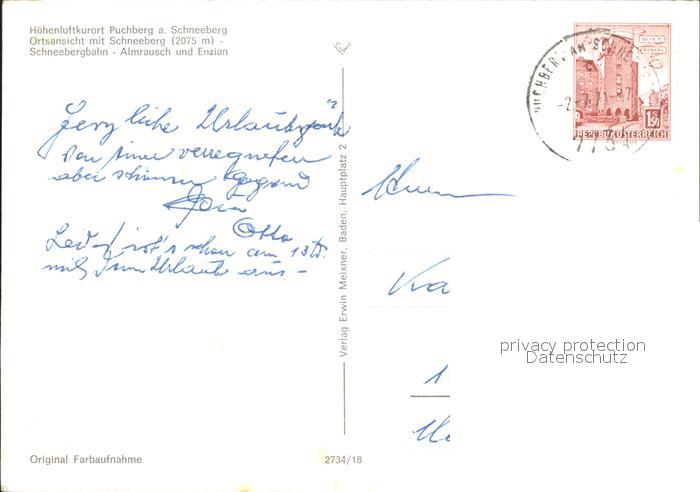 Höhenluftkurort Puchberg a. Schneeberg
Ortsansicht mit Schneeberg (2075 m) -
Schneebergbahn - Almrausch und Enzian
PUCHBERG AM SCHNEE
-2.-7.71-17
1,50
REPUBLIK ÖSTERREICH
Herzliche Urlaubsgrüße
von einer verregneten
aber schönen Gegend
Otto
Leider ist's schon am 13ten
mit dem Urlaub aus. -
Verlag Erwin Meixner, Baden, Hauptplatz 2
Herrn
Ka
1
privacy protection
Datenschutz
Original Farbaufnahme
2734/18